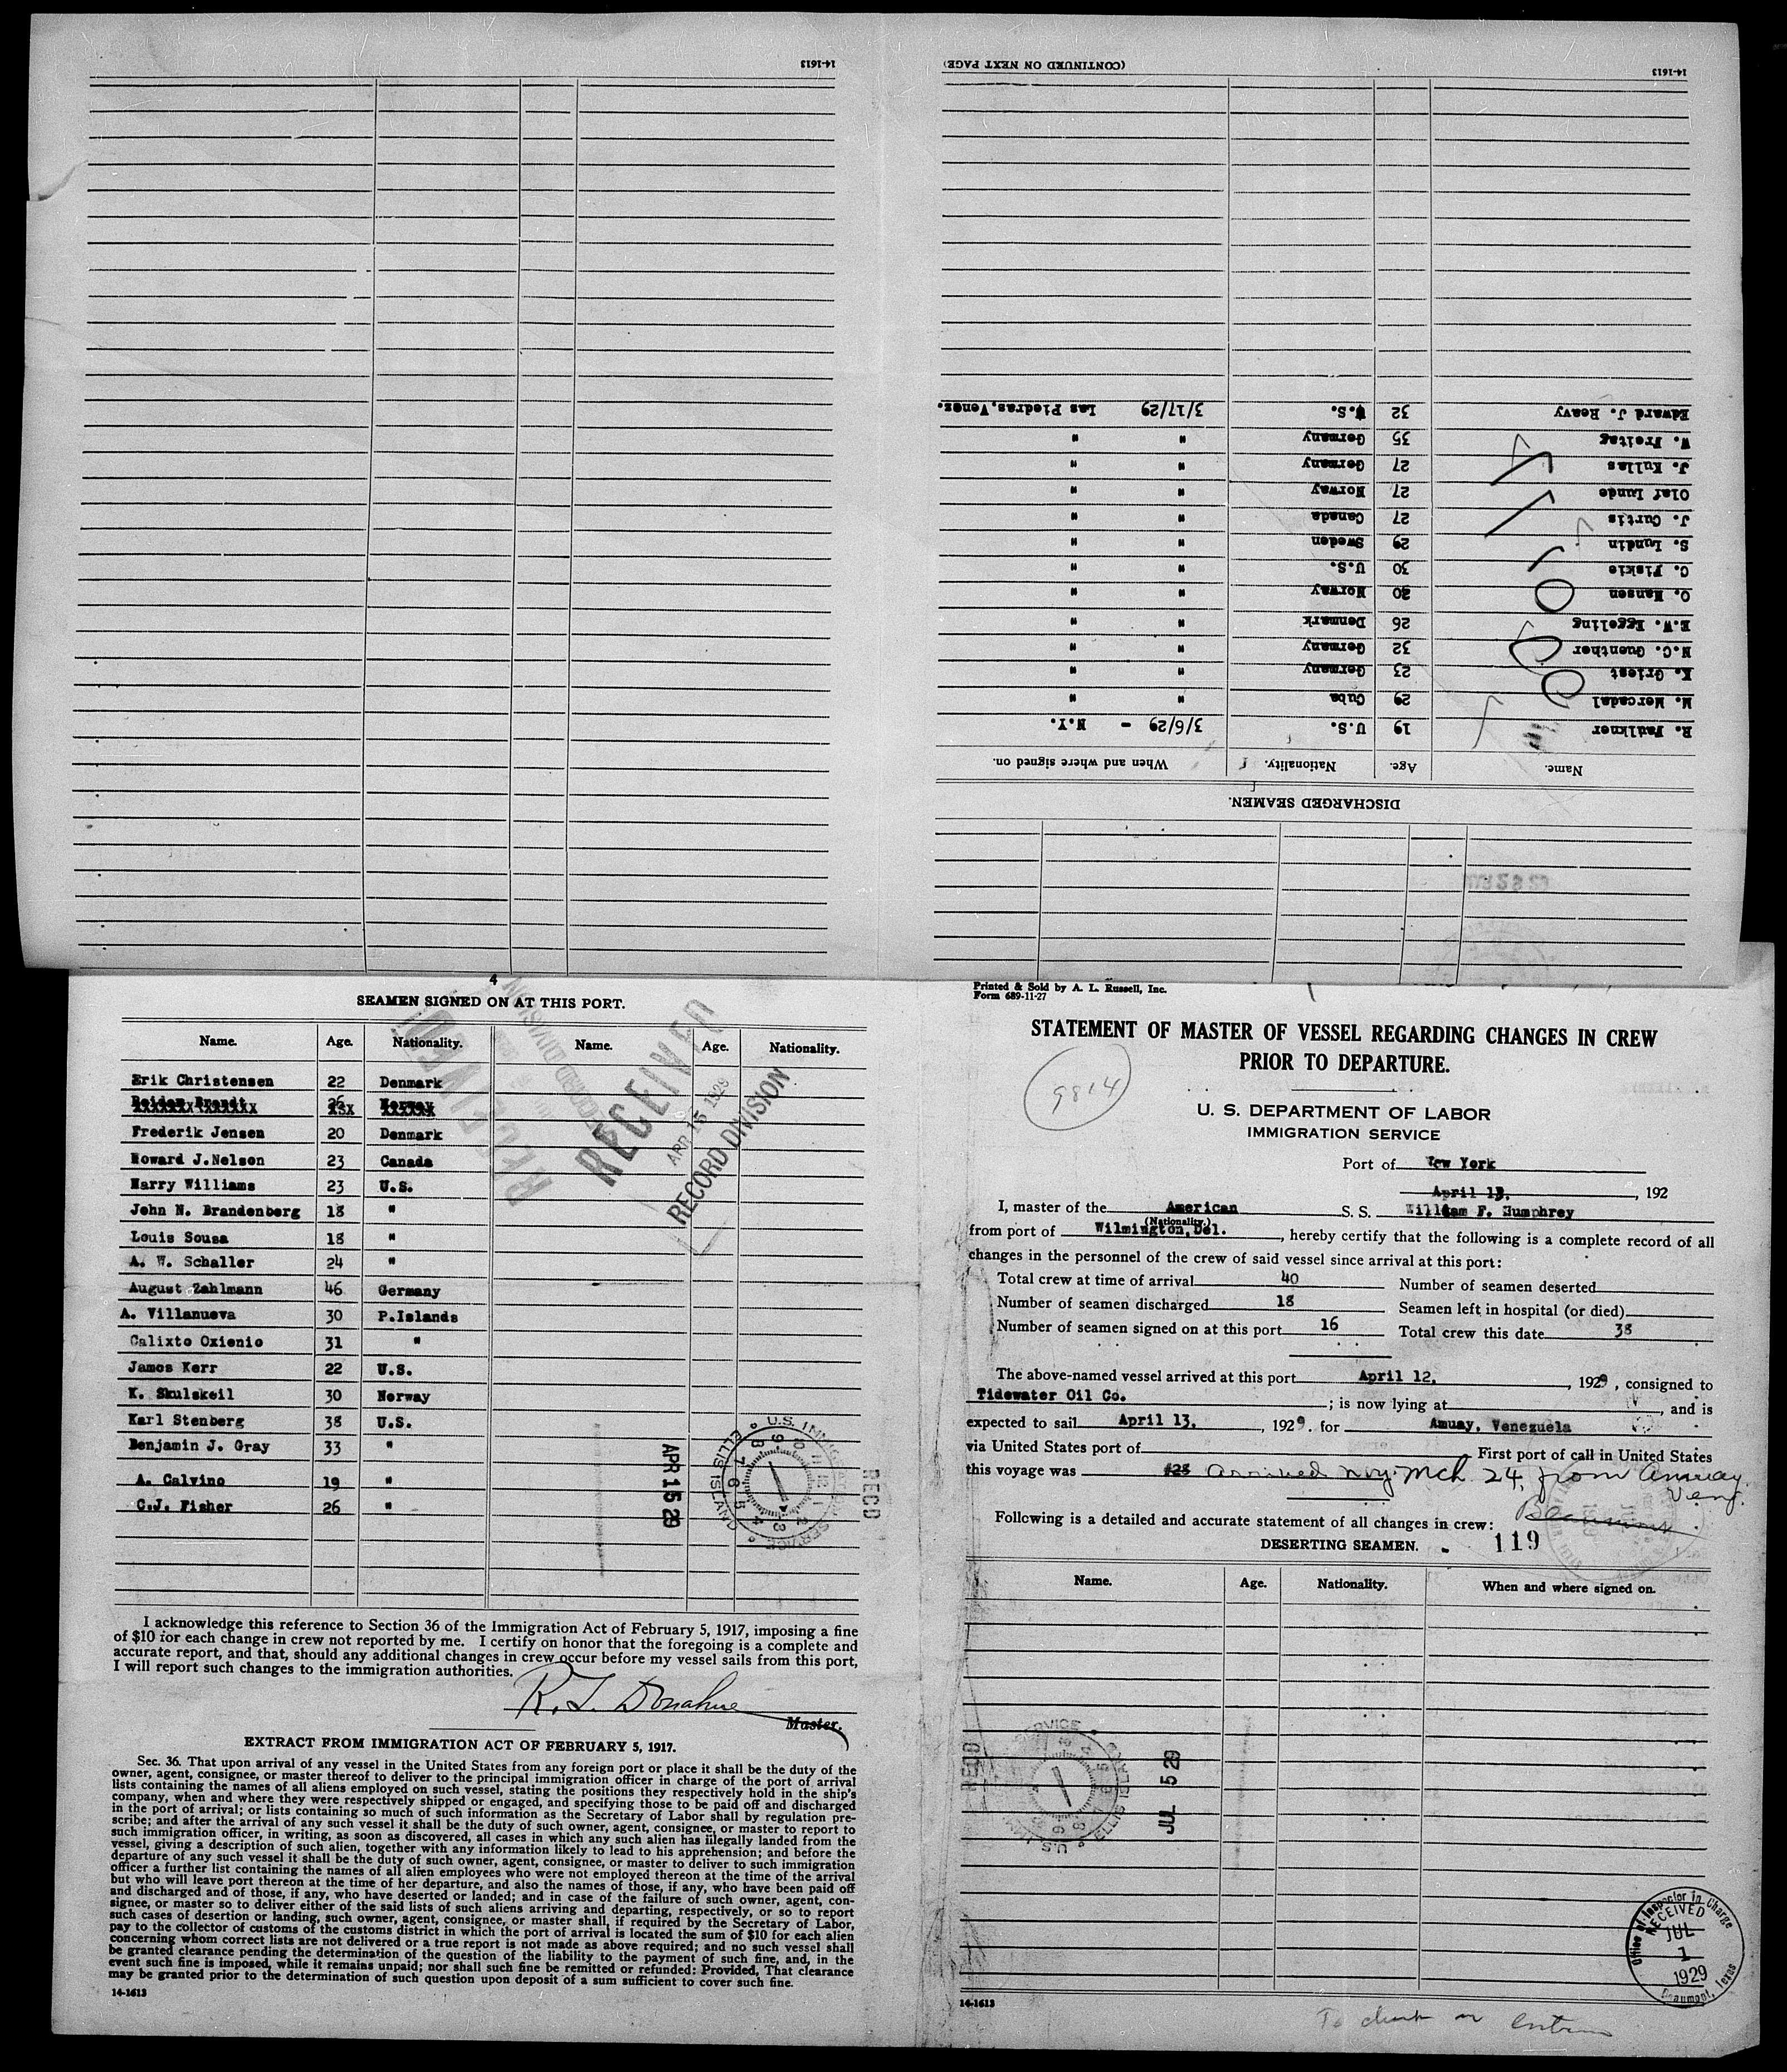 14-1613
(CONTINUED ON NEXT PAGE)
14-1613
DISCHARGED SEAMEN.
Name. Age. Nationality. When and where signed on.
R. Faulkner 19 U.S. 3/6/29 - N.Y.
M. Mercadal 29 Cuba " "
K. Griest 23 Germany " "
N.C. Guenther 32 Germany " "
E.W. Eggeling 26 Denmark " "
O. Hansen 20 Norway " "
C. Fiskie 30 U.S. " "
S. Lundin 29 Sweden " "
J. Curtis 27 Canada " "
Olaf Lunde 27 Norway " "
J. Kullas 27 Germany " "
W. Freitag 35 Germany " "
Edward J. Reavy 32 U.S. 3/17/29 Las Piedras, Venez.
4
SEAMEN SIGNED ON AT THIS PORT.
Name. Age. Nationality. Name. Age. Nationality.
Erik Christensen 22 Denmark
Reidar Brandt 26 Norway
Frederik Jensen 20 Denmark
Howard J. Nelson 23 Canada
Harry Williams 23 U.S.
John N. Brandenberg 18 "
Louis Sousa 18 "
A. W. Schaller 24 "
August Zahlmann 46 Germany
A. Villanueva 30 P.Islands
Calixto Oxienio 31 "
James Kerr 22 U.S.
K. Skulskeil 30 Norway
Karl Stenberg 38 U.S.
Benjamin J. Gray 33 "
A. Calvino 19 "
C.J. Fisher 26 "
RECEIVED
APR 15 1929
RECORD DIVISION
RECEIVED
RECORD DIVISION
APR 15 29
U.S. IMMIGRATION SERVICE
ELLIS ISLAND
RECD
I acknowledge this reference to Section 36 of the Immigration Act of February 5, 1917, imposing a fine
of $10 for each change in crew not reported by me. I certify on honor that the foregoing is a complete and
accurate report, and that, should any additional changes in crew occur before my vessel sails from this port,
I will report such changes to the immigration authorities.
R. L. Donahue
Master.
EXTRACT FROM IMMIGRATION ACT OF FEBRUARY 5, 1917.
Sec. 36. That upon arrival of any vessel in the United States from any foreign port or place it shall be the duty of the
owner, agent, consignee, or master thereof to deliver to the principal immigration officer in charge of the port of arrival
lists containing the names of all aliens employed on such vessel, stating the positions they respectively hold in the ship's
company, when and where they were respectively shipped or engaged, and specifying those to be paid off and discharged
in the port of arrival; or lists containing so much of such information as the Secretary of Labor shall by regulation pre-
scribe; and after the arrival of any such vessel it shall be the duty of such owner, agent, consignee, or master to report to
such immigration officer, in writing, as soon as discovered, all cases in which any such alien has illegally landed from the
vessel, giving a description of such alien, together with any information likely to lead to his apprehension; and before the
departure of any such vessel it shall be the duty of such owner, agent, consignee, or master to deliver to such immigration
officer a further list containing the names of all alien employees who were not employed thereon at the time of the arrival
but who will leave port thereon at the time of her departure, and also the names of those, if any, who have been paid off
and discharged and of those, if any, who have deserted or landed; and in case of the failure of such owner, agent, con-
signee, or master so to deliver either of the said lists of such aliens arriving and departing, respectively, or so to report
such cases of desertion or landing, such owner, agent, consignee, or master shall, if required by the Secretary of Labor,
pay to the collector of customs of the customs district in which the port of arrival is located the sum of $10 for each alien
concerning whom correct lists are not delivered or a true report is not made as above required; and no such vessel shall
be granted clearance pending the determination of the question of the liability to the payment of such fine, and, in the
event such fine is imposed, while it remains unpaid; nor shall such fine be remitted or refunded: Provided, That clearance
may be granted prior to the determination of such question upon deposit of a sum sufficient to cover such fine.
14-1613
Printed & Sold by A. L. Russell, Inc.
Form 689-11-27
STATEMENT OF MASTER OF VESSEL REGARDING CHANGES IN CREW
PRIOR TO DEPARTURE.
9814
U. S. DEPARTMENT OF LABOR
IMMIGRATION SERVICE
Port of New York
April 13, , 192
I, master of the American S. S. William F. Humphrey
(Nationality.)
from port of Wilmington, Del. , hereby certify that the following is a complete record of all
changes in the personnel of the crew of said vessel since arrival at this port:
Total crew at time of arrival 40 Number of seamen deserted
Number of seamen discharged 18 Seamen left in hospital (or died)
Number of seamen signed on at this port 16 Total crew this date 38
The above-named vessel arrived at this port April 12, , 1929 , consigned to
Tidewater Oil Co. ; is now lying at , and is
expected to sail April 13, , 1929 . for Amuay, Venezuela
via United States port of First port of call in United States
this voyage was arrived N.Y. Mch 24, from Amuay
Venz.
Beaumont
Following is a detailed and accurate statement of all changes in crew:
DESERTING SEAMEN. - 119
Name. Age. Nationality. When and where signed on.
RECD
U.S. IMMIGRATION SERVICE
ELLIS ISLAND
JUL 5 29
Office of Inspector in Charge
RECEIVED
JUL
1
1929
Beaumont, Texas
14-1613
To check on